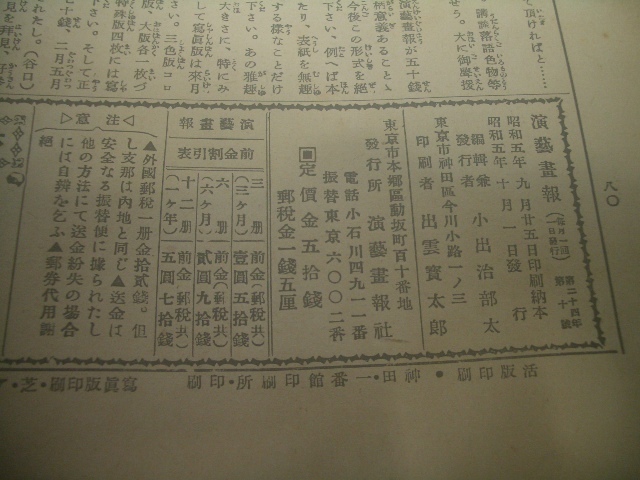 て頂ければと……
講談落語色物等
せう。大に御應援
演藝畫報が五十錢
今後この形式を絕
下さい、例へば本
たり、表紙を無趣
する樣なことだけ
下さい。あの雅趣
大きさに、特にみ
して寫眞版は來月
さい。三色版コロ
版、大版各一枚づ
特殊版四枚には寫
さい。そして正
十錢、二月五月
れたし。（谷口）
八〇
演藝畫報（每月一回一日發行）第二十四年第十號
昭和五年九月廿五日印刷納本
昭和五年十月一日發行
編輯兼發行者 小出治部太
東京市神田區今川小路一ノ三
印刷者 出雲寶太郎
東京市本鄕區動坂町百十番地
發行所 演藝畫報社
電話小石川四九一一番
振替東京六〇〇二番
■定價金五拾錢
郵稅金一錢五厘
演藝畫報
前金割引表
三册（三ヶ月）前金（郵稅共）壹圓五拾錢
六册（六ヶ月）前金（郵稅共）貳圓九拾錢
十二册（一ヶ年）前金（郵稅共）五圓七拾錢
◁注意▷
▲外國郵稅一册金拾貳錢。但
し支那は內地と同じ▲送金は
安全なる振替便に據られたし
他の方法にて送金紛失の場合
には自辨を乞ふ▲郵劵代用謝
絕
活版印刷・神田・一番館印刷所・印刷
寫眞版印刷・芝・